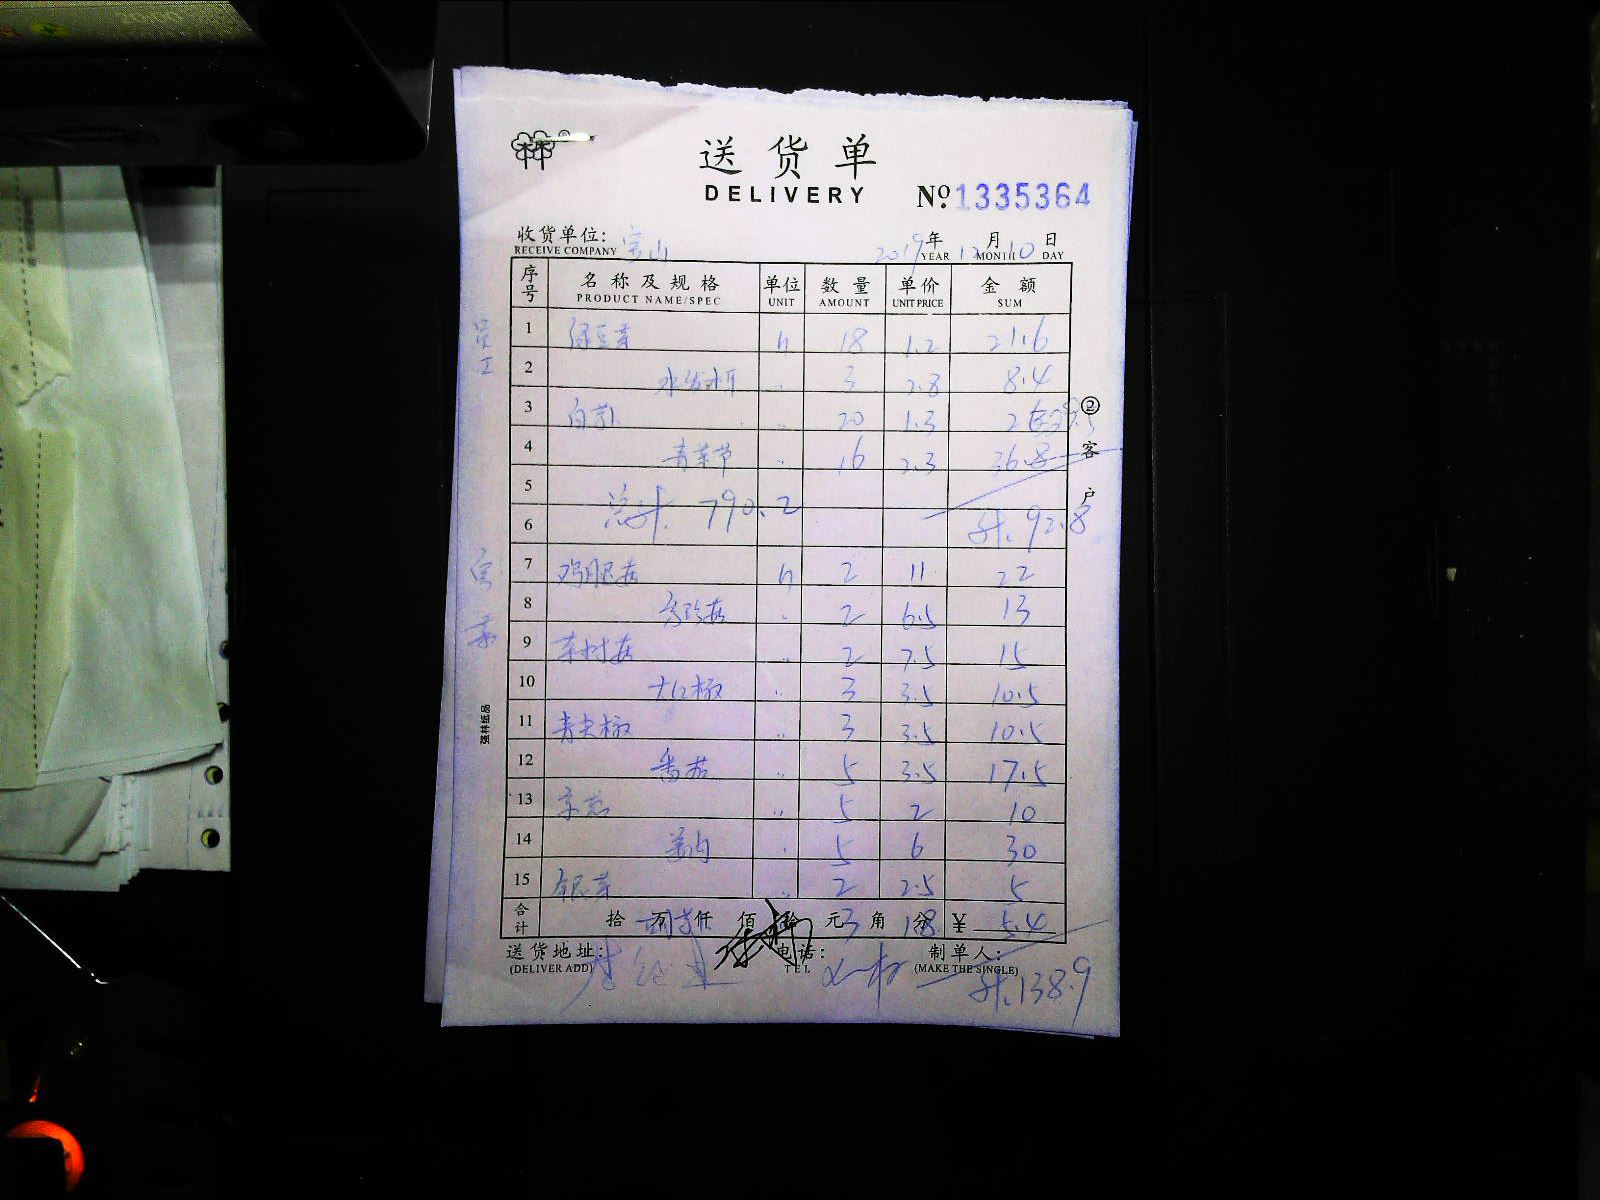 送货单
DELIVERY
№1335364
收货单位: 宝山 2019年12月10日
RECEIVE COMPANY YEAR MONTH DAY
序号 名称及规格 单位 数量 单价 金额
PRODUCT NAME/SPEC UNIT AMOUNT UNIT PRICE SUM
员工
1 绿豆芽 斤 18 1.2 21.6
2 水发木耳 〃 3 2.8 8.4
3 白 〃 20 1.3 2
4 青菜 〃 16 2.3 36.8
5 总计. 790.2
6 计. 92.8
客
7 鸡腿菇 斤 2 11 22
8 秀珍菇 〃 2 6.5 13
9 茶树菇 〃 2 7.5 15
10 大红椒 〃 3 3.5 10.5
11 青尖椒 〃 3 3.5 10.5
12 番茄 〃 5 3.5 17.5
13 京葱 〃 5 2 10
14 姜肉 〃 5 6 30
15 银芽 〃 2 2.5 5
合计 拾 万 仟 佰 拾 元 角 分 ¥ 5.4
3 18
送货地址: 电话: 制单人:
(DELIVER ADD) TEL (MAKE THE SINGLE)
计.138.9
②客户
强林纸品